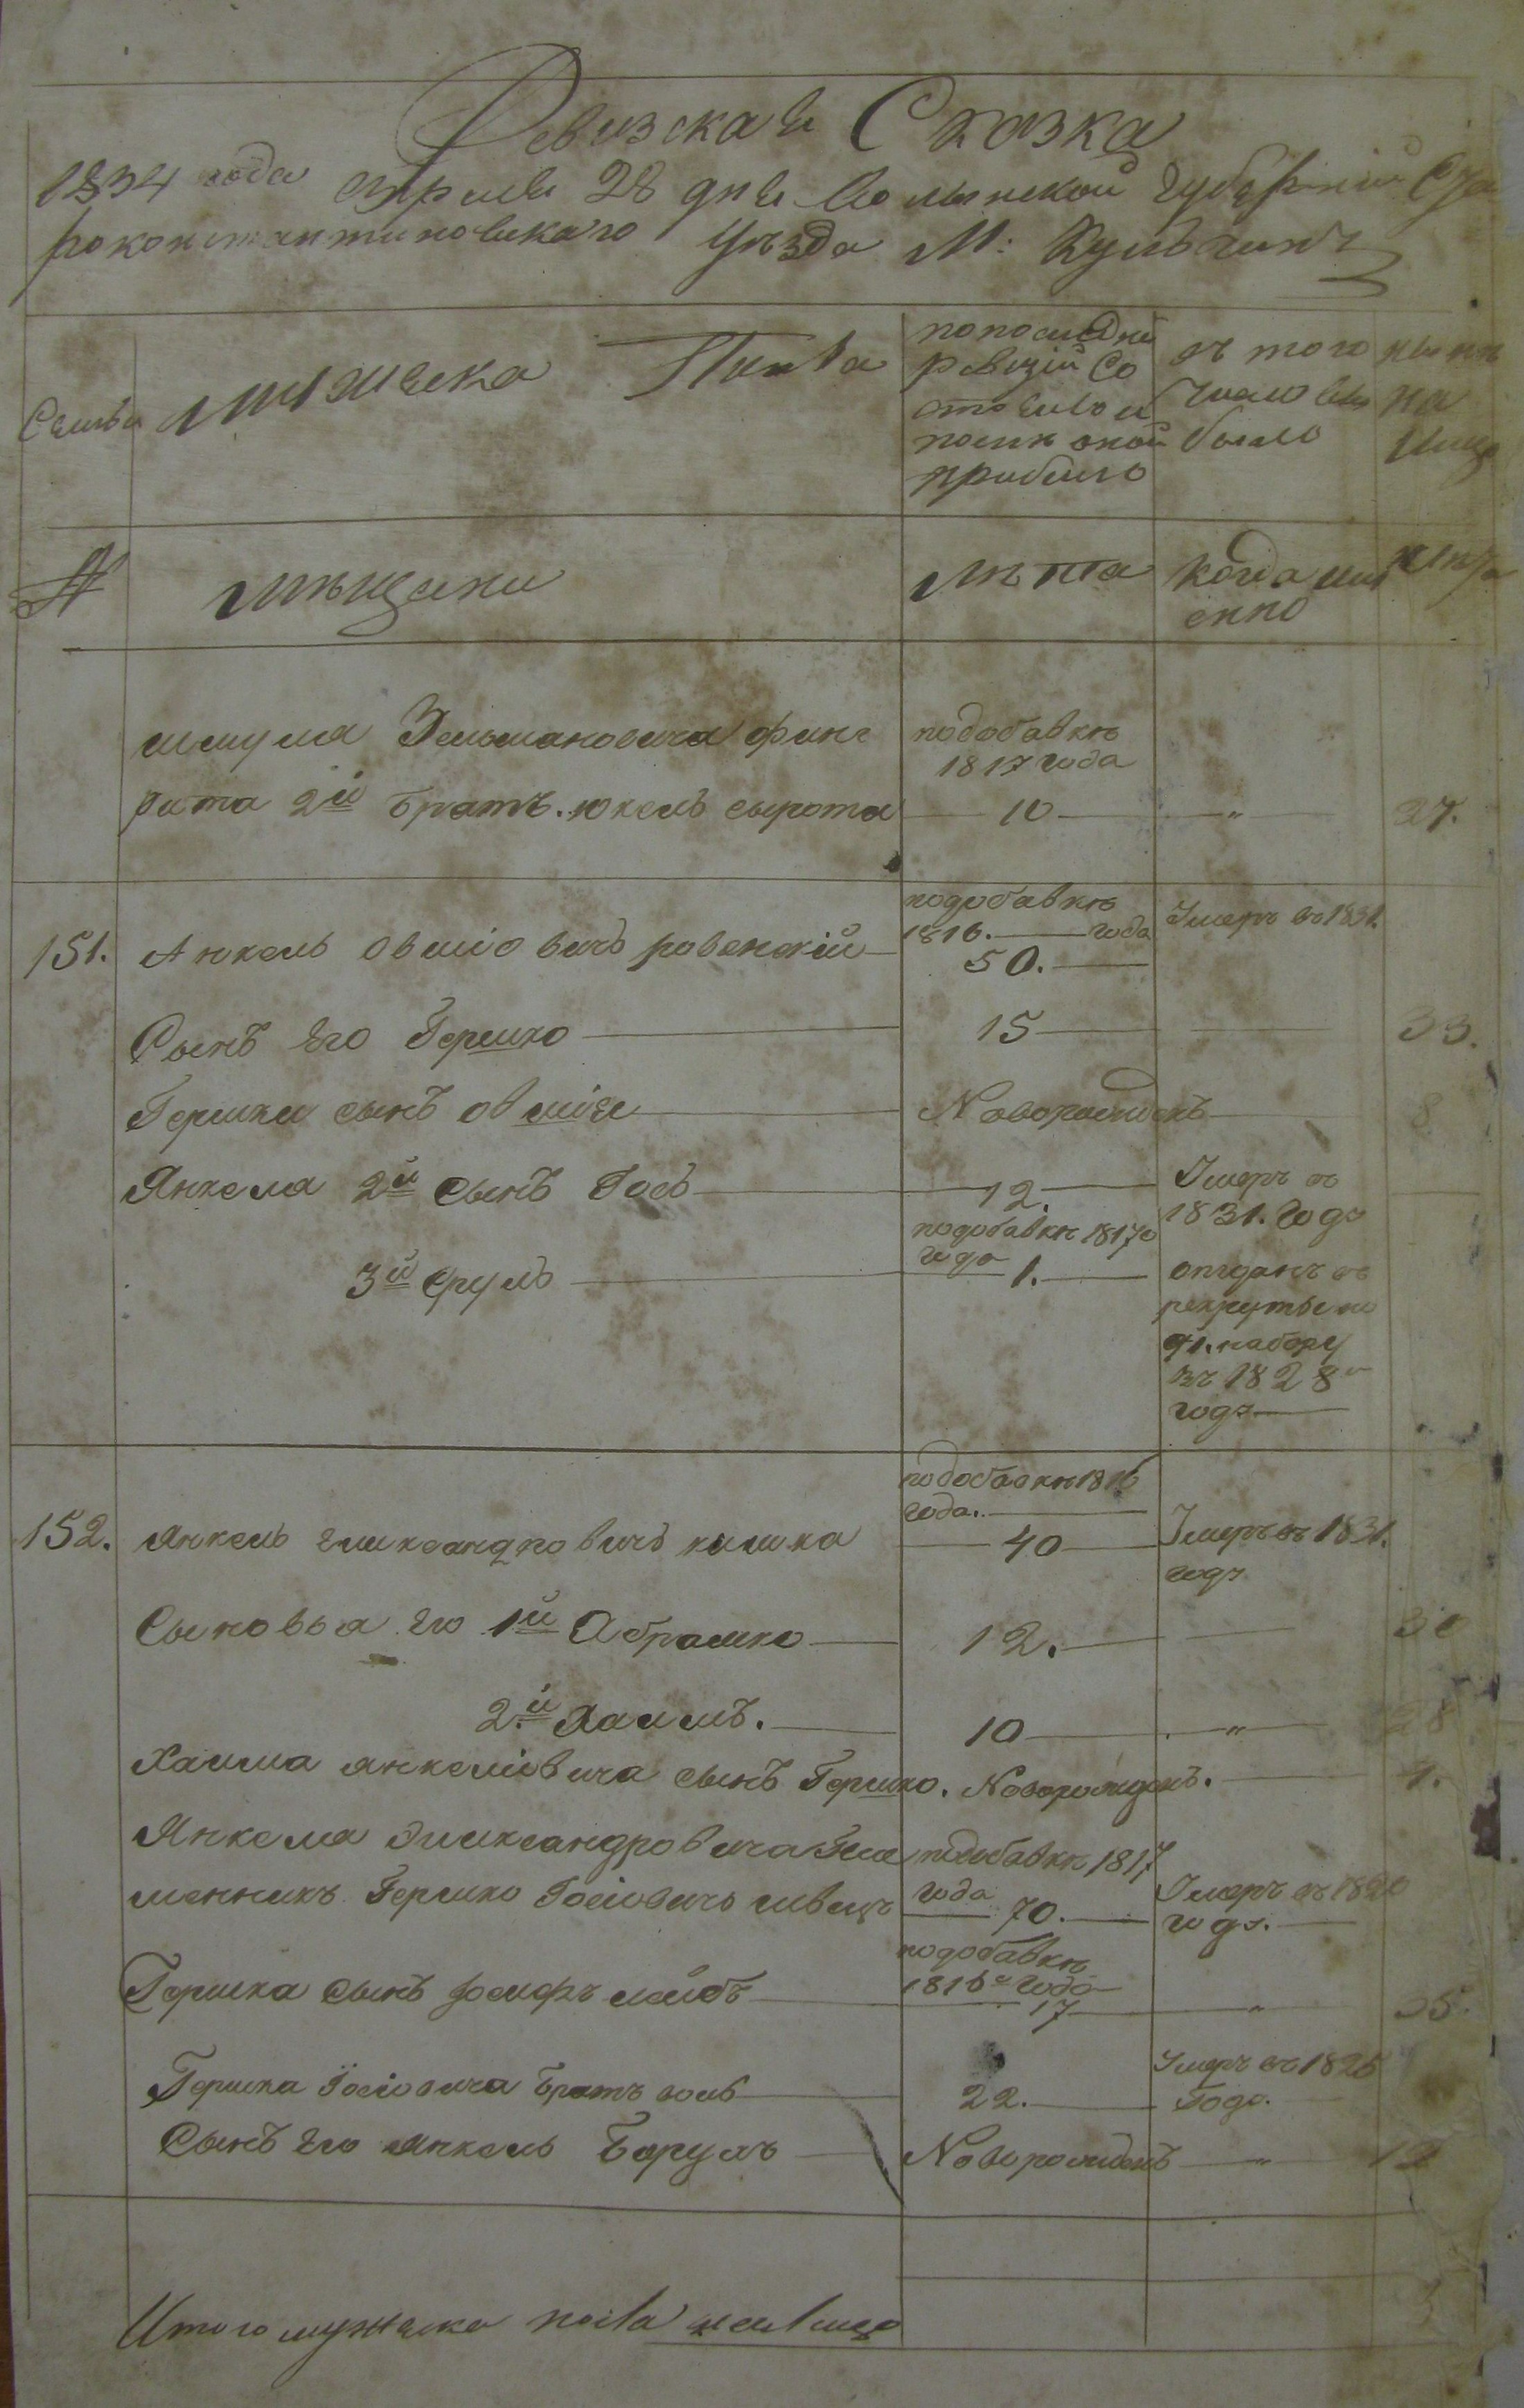 Ревизская Сказка
1834 года априля 28 дня Волынской губерній Ста
роконстантиновского уѣзда М: Кульчинъ
Семья
мужеска Пола
попослѣдней
ревизіи Со
стояло и
послѣ оной
прибыло
зъ того
число вы
было
нынѣ
на
лицо
№
мѣщани
лѣта
когда имя
енно
лѣта
шмуля Зельмановича финг
рита 2й братъ. юкель сырота
подобавкѣ
1817 года
10 — „ — 27.
151. Анкель овшіовичъ ровенскій
подобавкѣ
1816. года
50.
Умеръ въ 1831.
Сынъ Его Гершко 15 33.
Гершки сынъ овшія Новорожденъ 8
Янкеля 2й сынъ Іосъ 12.
Умеръ въ
1831. годо
3й Срулъ
подобавкѣ 1817го
года 1.
отданъ въ
рекруты по
91. набору
въ 1828м
годъ
152. Янкель елександровичъ кишка
подобавкѣ 1816
года.
40
Умеръ въ 1831.
годъ
Сыновья Его 1й Абрамко 12. 30
2.й Хаимъ. 10 — „ — 28
Хаима янкеліовича сынъ Гершко. Новорожденъ. 4.
Янкеля Элександровича Пле
менникъ Гершко Іосіовичъ швецъ
подобавкѣ 1817
года 70.
Умеръ въ 1820
годъ.
Гершка сынъ іосифъ лейбъ
подобавкѣ
1816го года
17 — „ — 35.
Гершка Іосіовича братъ
22.
Умеръ въ 1825
Годо.
Сынъ Его янкель Борухъ Новорожденъ — „ — 12
Итого мужеска пола налицо